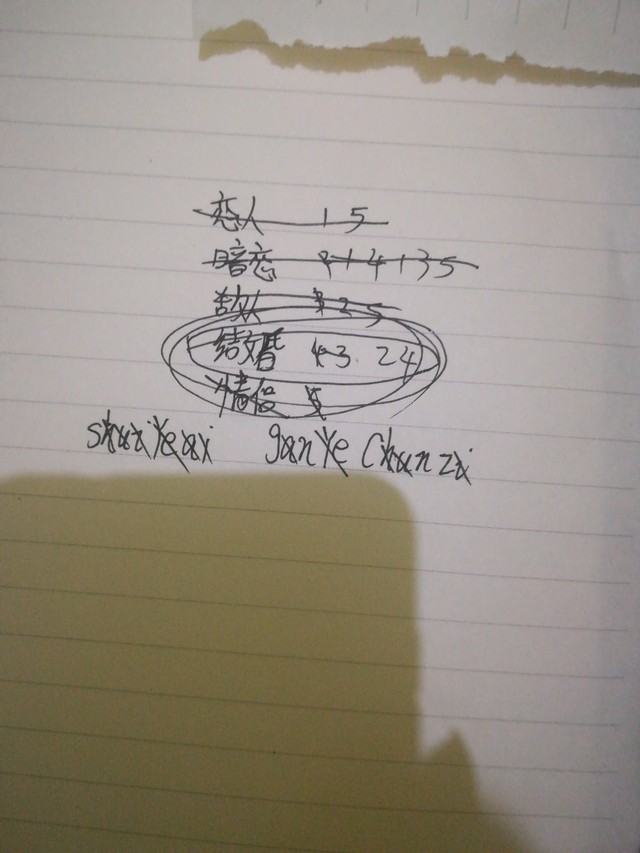 恋人 1 5
暗恋 2 1 4 1 3 5
敌人 3 2 5
结婚 4 3 2 4
情侣 5
shuziyeazi ganye chunzi